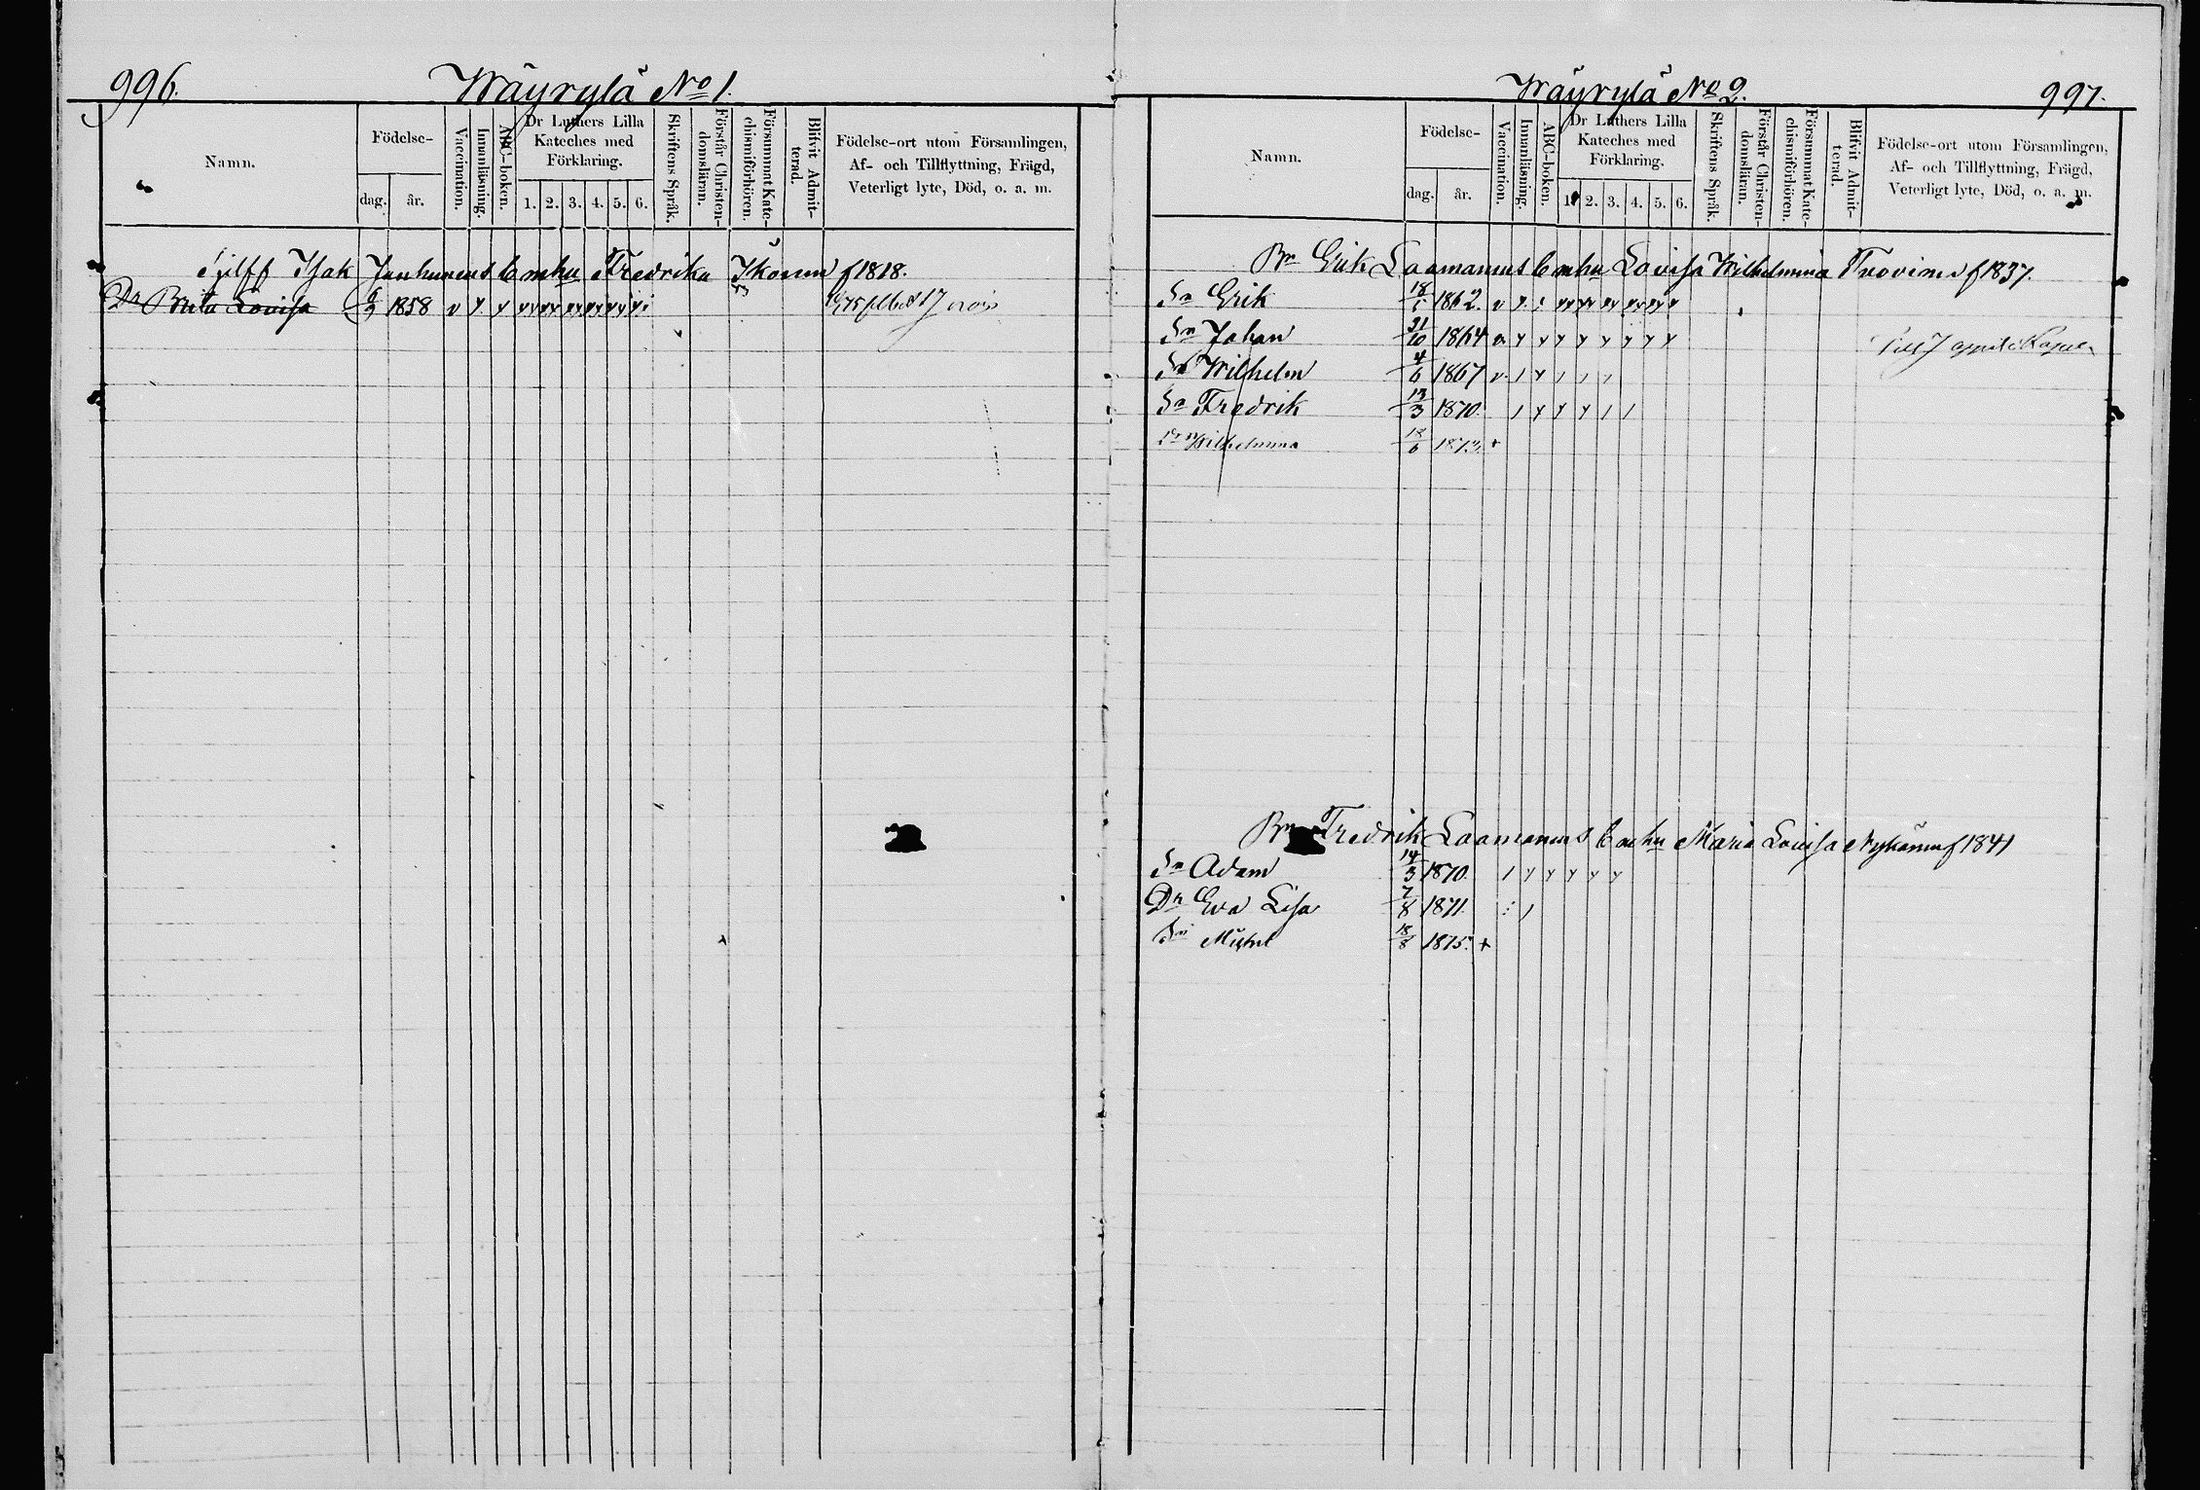 996.
Wäyrylä No 1.
Namn.
Födelse-
dag.
år.
Vaccination.
Innanläsning.
ABC-boken.
Dr Luthers Lilla
Kateches med
Förklaring.
1. 2. 3. 4. 5. 6.
Skriftens Språk.
Förstår Christen-
domsläran.
Försummat Kate-
chismiförhören.
Blifvit Admit-
terad.
Födelse-ort utom Församlingen,
Af- och Tillflyttning, Frägd,
Veterligt lyte, Död, o. a. m.
Isak Fredrika Ikonen f 1818.
Dr Brita Lovisa 1858
Wäyrylä No 2.
997.
Namn.
Födelse-
dag.
år.
Vaccination.
Innanläsning.
ABC-boken.
Dr Luthers Lilla
Kateches med
Förklaring.
1. 2. 3. 4. 5. 6.
Skriftens Språk.
Förstår Christen-
domsläran.
Försummat Kate-
chismiförhören.
Blifvit Admit-
terad.
Födelse-ort utom Församlingen,
Af- och Tillflyttning, Frägd,
Veterligt lyte, Död, o. a. m.
Bn Erik Laamanens Lovisa Wilhelmina f 1837.
Sn Erik 18/1 1862.
Sn Johan 31/10 1864
Sn Wilhelm 4/6 1867
Sn Fredrik 13/3 1870.
Dr Wilhelmina 18/6 1873. +
Bn Fredrik Laamanens Maria Lovisa f 1841
Sn Adam 14/3 1870.
Dr Eva Lisa 7/8 1871.
Sn Michel 18/8 1875. +